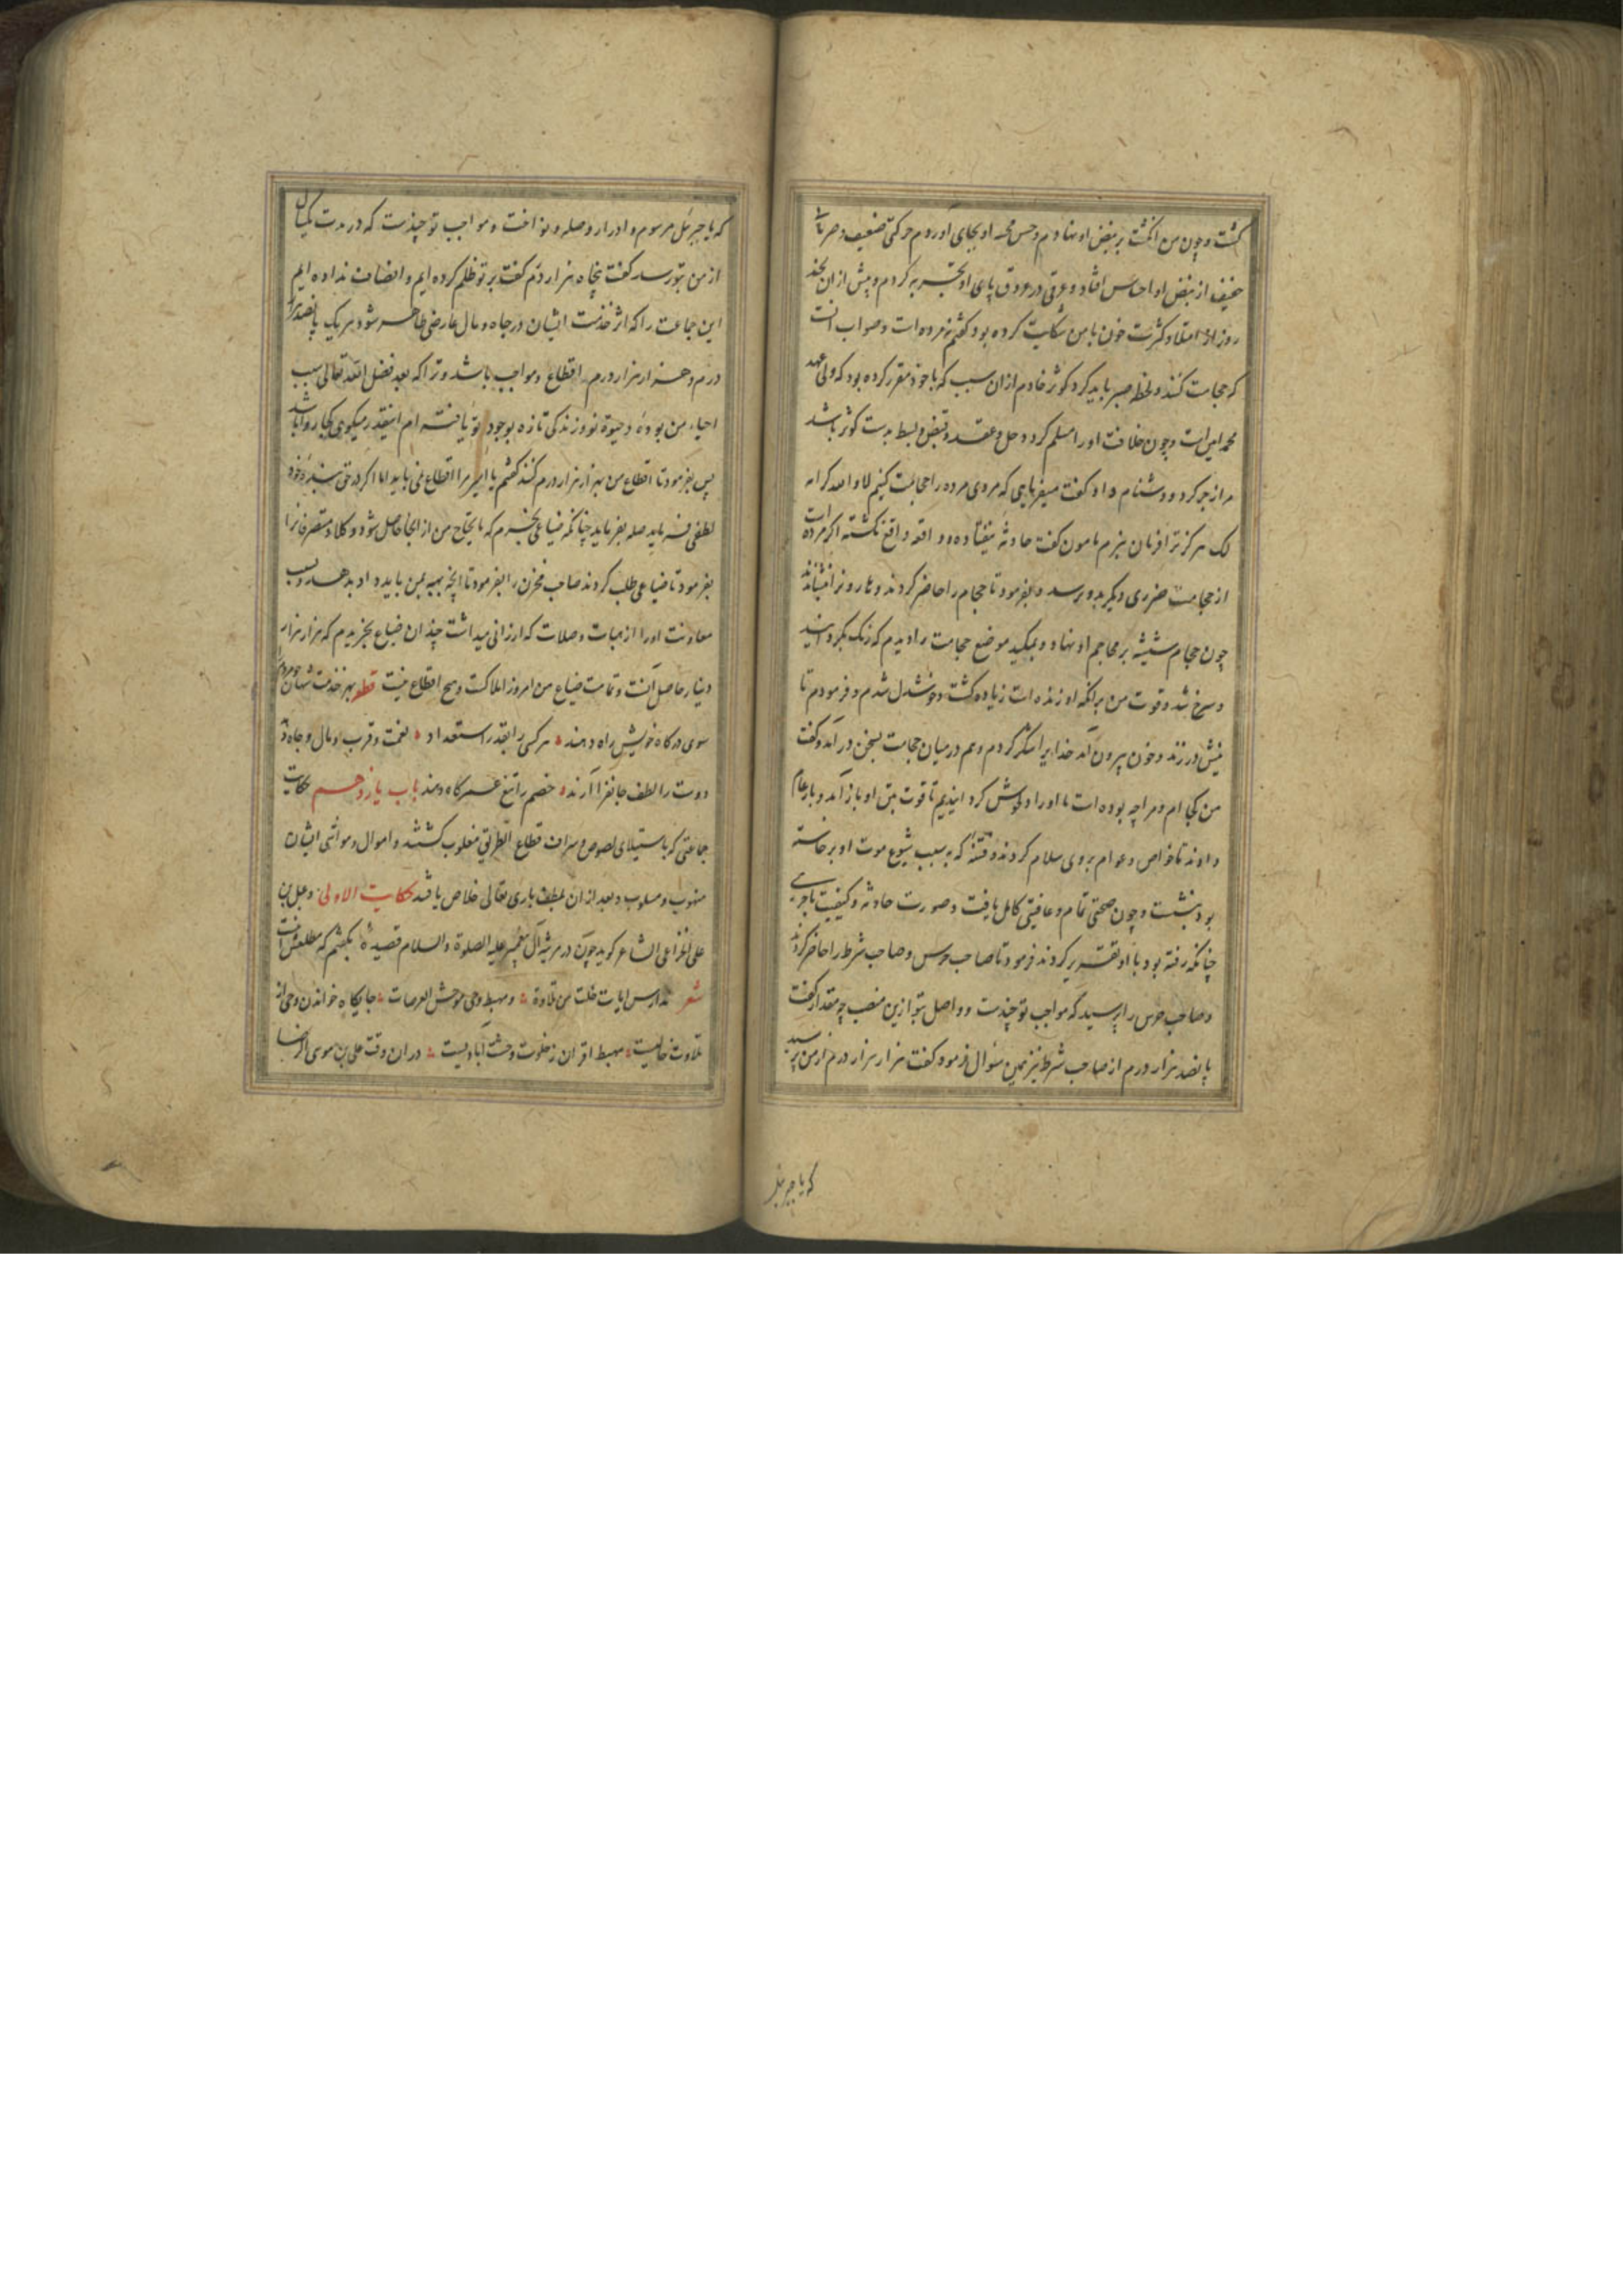 گشت و چون من انگشت بر نبض او نهادم و حس مجسه او بجای آوردم حرکتی ضعیف و ضربانی
خفیف از نبض او احساس افتاد و عرقی در عروق پای او تجربه کردم و پیش از آن بچند
روز از امتلا و کثرت خون با من شکایت کرده بود گفتم نمرده است و صواب آنست
که حجامت کنند و لحظه صبر باید کرد کوثر خادم از آن سبب که با خود مقرر کرده بود که ولی عهد
محمد امین است و چون خلافت او را مسلم کردد حل و عقد و قبض و بسط بدست کوثر باشد
مرا زجر کرد و دشنام داد و گفت میفرمایی که مردی مرده را حجامت کنیم لا و لا کرامة
لک هرگز ترا فرمان نبرم مامون گفت حادثه نیفتاده و واقعه واقع نگشته اگر مرده است
از حجامت ضرری دیگر بدو نرسد و بفرمود تا حجام را حاضر کردند و هارون را بنشاندند
چون حجام شیشه بر محاجم او نهاد و بمکید موضع حجامت را دیدم که رنگ بگردانید
و سرخ شد و قوت من بر آنکه او زنده است زیاده گشت و خوشدل شدم و فرمودم تا
نیش در زند و خون بیرون آمد خدایرا شکر کردم و هم در میان حجامت بسخن درآمد و گفت
من کجا ام و مرا چه بوده است ما او را دلخوش گردانیدیم تا قوت بتن او باز آمد و بار عام
دادند تا خواص و عوام بر وی سلام کردند و فتنه که بسبب شیوع موت او برخاسته
بود بنشست و چون صحتی تمام و عافیتی کامل یافت و صورت حادثه و کیفیت ماجری
چنانکه رفته بود با او تقریر کردند فرمود تا صاحب حرس و صاحب شرط را حاضر کردند
و صاحب حرس را پرسید که مواجب تو چندست و واصل بتو ازین منصب چه مقدار گفت
پانصد هزار درم از صاحب شرط نیز همین سؤال فرمود گفت هزار هزار درم از من پرسید
که یا جبرئیل
که یا جبرئیل مرسوم و ادرار و صله و نواخت و مواجب تو چندست که در مدت یکسال
از من بتو رسد گفت پنجاه هزار درم گفت بر تو ظلم کرده ایم و انصاف نداده ایم
این جماعت را که اثر خدمت ایشان در جاه و مال عارضی ظاهر شود هر یک پانصد هزار
درم و هزار هزار درم اقطاع و مواجب باشد و ترا که بعد فضل الله تعالی سبب
احیاء من بوده و حیوة نو و زندگی تازه بوجود تو یافته ام اینقدر میکوی کجا روا باشد
پس بفرمود تا اقطاع من هزار هزار درم کنند گفتم یا امیر مرا اقطاع نمی باید اما اگر در حق بنده خود
لطفی فرماید صله بفرماید چنانکه ضیاعی بخرم که مایحتاج من از آنجا حاصل شود وکلاء و متصرفانرا
بفرمود تا ضیاعی طلب کردند صاحب مخزن را بفرمود تا آنچه بهمن باید داد بدهد و بسبب
معاونت او را از هبات و صلات که ارزانی میداشت چندان ضیاع بخریدم که هزار هزار
دینار حاصل آنست و تمامت ضیاع من امروز املاکست و هیچ اقطاع نیست قطعه بهر خدمت شهان چو مردم را
سوی درگاه خویش راه دهند هر کسی را بقدر استعداد نعمت و قرب و مال و جاه دهند
دوست را لطف جانفزا آرند خصم را تیغ عمرکاه دهند باب یازدهم حکایت
جماعتی که باستیلای لصوص و سراق و قطاع الطریق مغلوب گشتند و اموال و مواشی ایشان
منهوب و مسلوب و بعد از آن بلطف باری تعالی خلاص یافتند حکایت الاولی دعبل بن
علی الخزاعی الشاعر کوید چون در مرثیه آل پیغمبر علیه الصلوة و السلام قصیده بگفتم که مطلعش اینست
شعر مدارس آیات خلت من تلاوة و مهبط وحی موحش العرصات جایگاه خواندن وحی از
تلاوت خالیست مهبط اقرآن ز خلوت وحشت آبادیست در آن وقت علی بن موسی الرضا